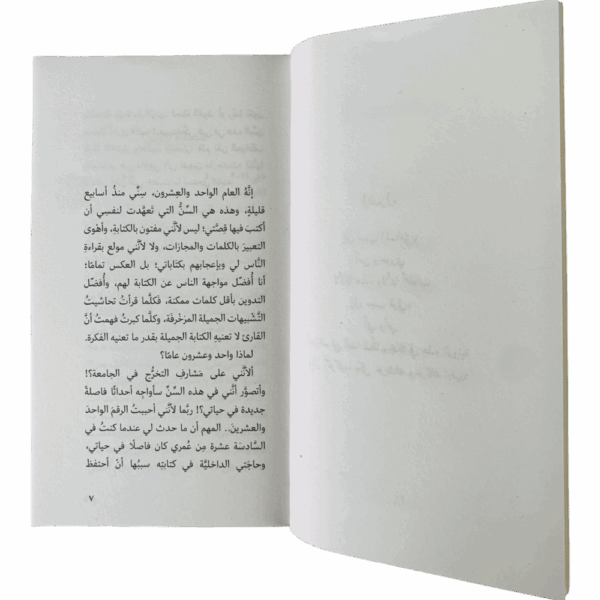 إنَّهُ العام الواحد والعِشرون، سِنِّي منذُ أسابيع
قليلةٍ، وهذه هي السِّنُّ التي تعهَّدت لنفسِي أن
أكتبَ فيها قِصَّتي؛ ليس لأنَّني مفتون بالكتابةِ، وأهْوَى
التعبيرَ بالكلمات والمجازات، ولا لأنَّني مولع بقراءةِ
النَّاس لي وبإعجابهم بكتاباتي؛ بل العكس تمامًا؛
أنا أُفضِّل مواجهة الناس عن الكتابة لهم، وأُفضّل
التدوين بأقل كلمات ممكنة، فكلَّما قرأتُ تحاشيتُ
التَّشبيهات الجميلة المزخْرفَة، وكلَّما كبرتُ فهمتُ أنَّ
القارئ لا تعنيهِ الكتابة الجميلة بقدر ما تعنيه الفكرة.
لماذا واحد وعشرون عامًا؟
ألأنَّني على مَشارفِ التخرُّج في الجامعة؟!
وأتصوَّر أنَّني في هذه السِّنِّ سأواجِه أحداثًا فاصلةً
جديدة في حياتي؟! ربَّما لأنَّني أحببتُ الرقمَ الواحدَ
والعشرينَ.. المهم أن ما حدث لي عندما كنتُ في
السَّادسَة عشرة مِن عُمري كان فاصلًا في حياتي،
وحاجَتي الداخليَّة في كتابتِه سببُها أنْ أحتفظ
٧